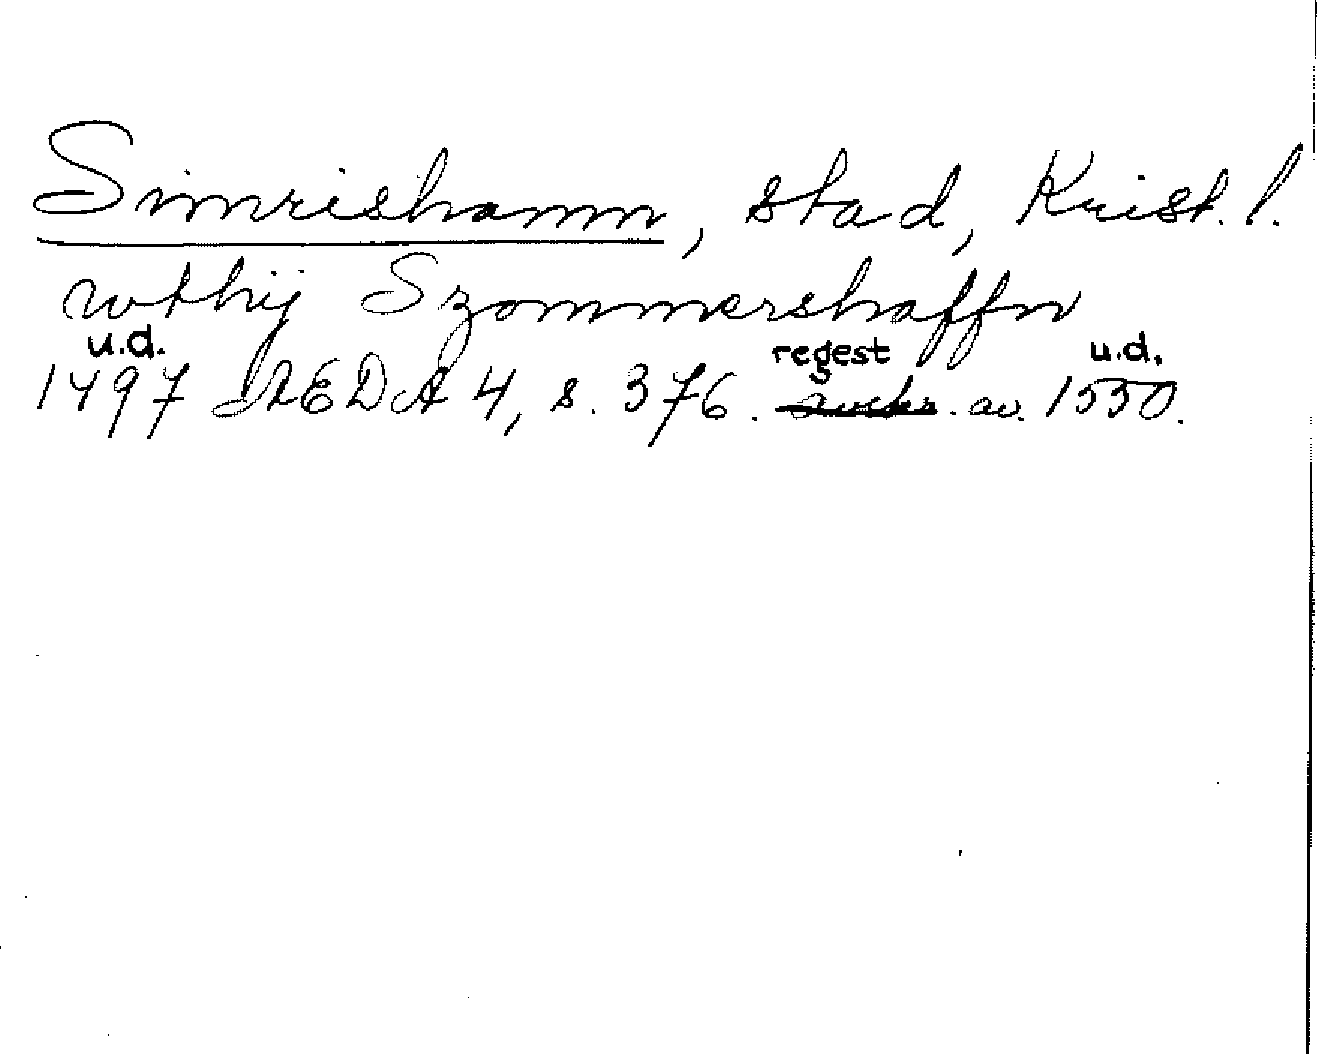 Simrishamn, stad, Krist. l.
wthij Szommershaffn
u.d. regest u.d.
1497 ÆDA 4, s. 376. av 1550.